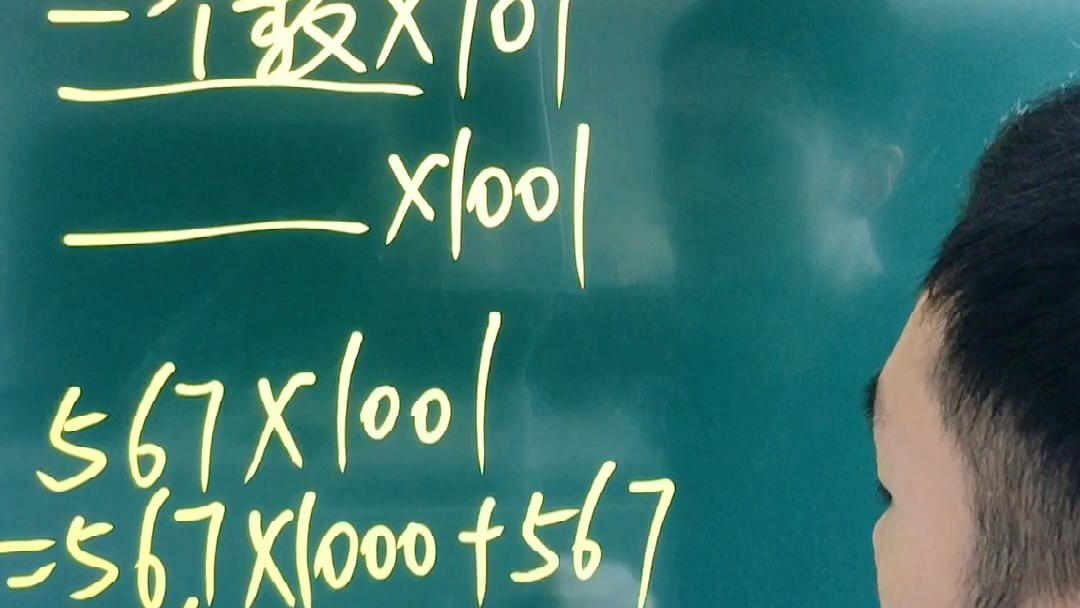 一个数×101
×1001
567×1001
=567×1000+567